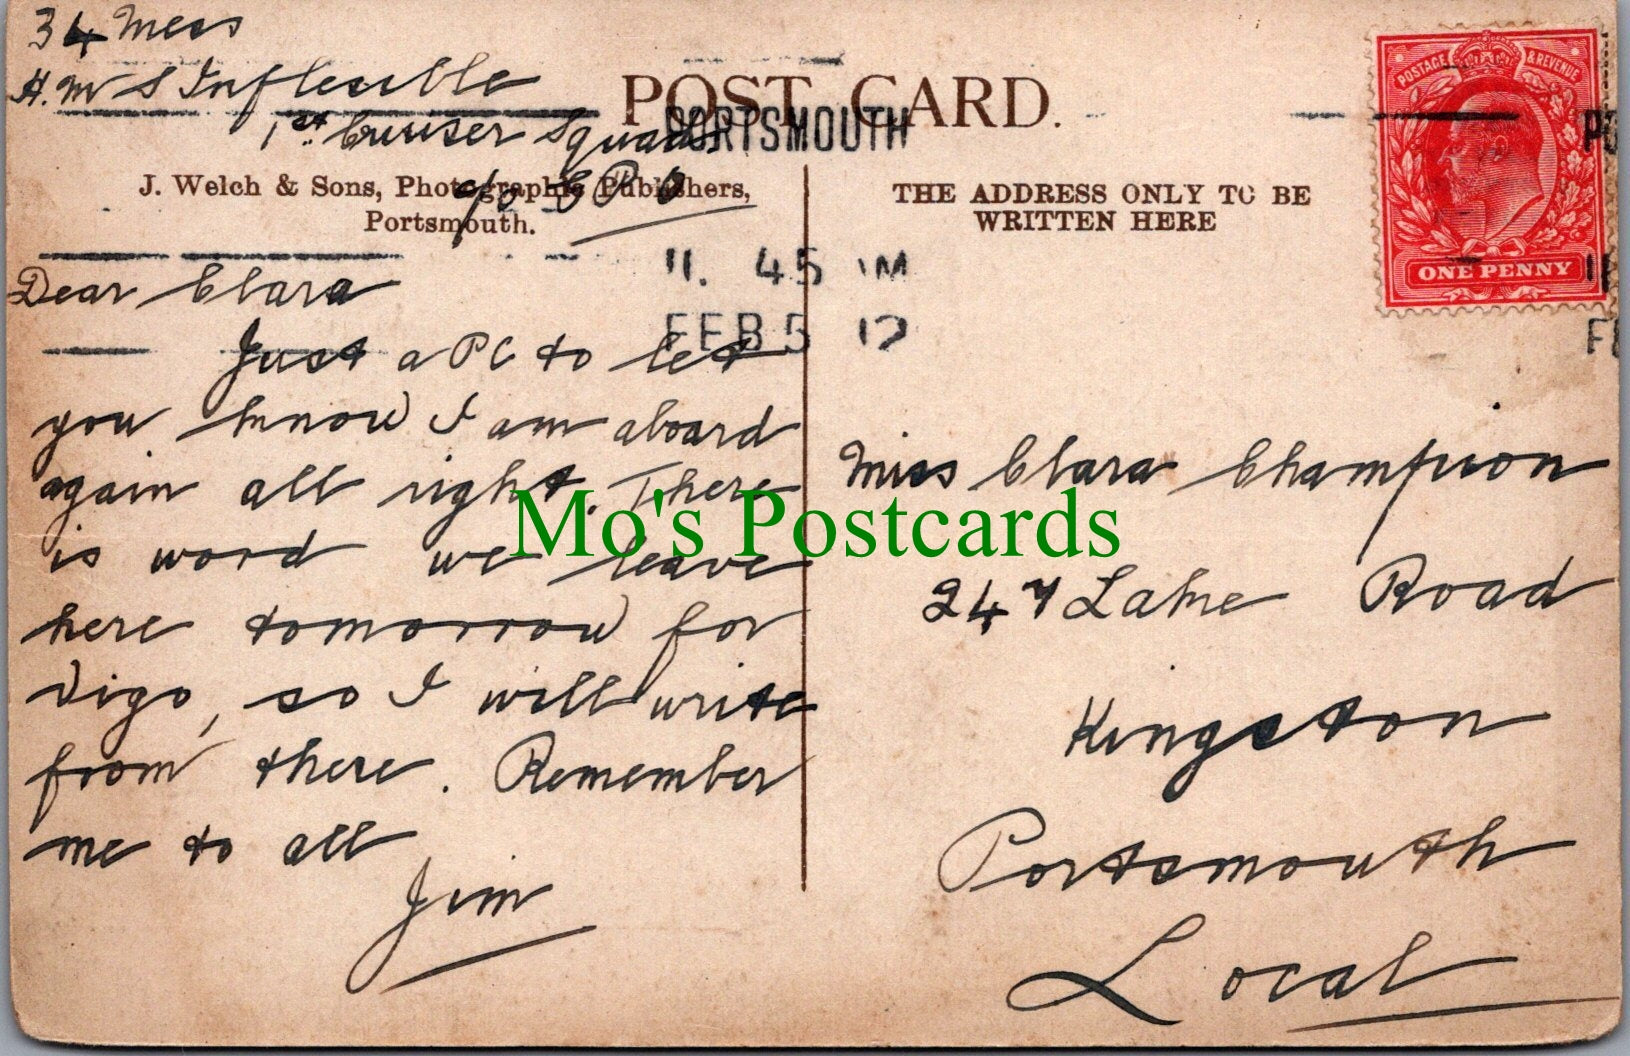 34 Mess
H.M S Inflexible
1st Cruiser Squad
c/o G P O
POST CARD.
PORTSMOUTH
11. 45 AM
FEB 5 12
J. Welch & Sons, Photographic Publishers,
Portsmouth.
THE ADDRESS ONLY TO BE
WRITTEN HERE
POSTAGE & REVENUE
ONE PENNY
Dear Clara
Just a PC to let
you know I am aboard
again all right. There
is word we leave
here tomorrow for
Vigo, so I will write
from there. Remember
me to all
Jim
Miss Clara Champion
247 Lake Road
Kingston
Portsmouth
Local
Mo's Postcards